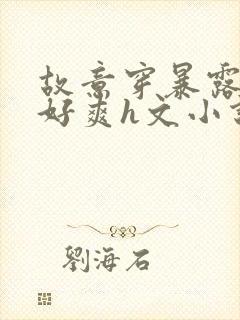 故意穿暴露
好爽h文小
劉海石